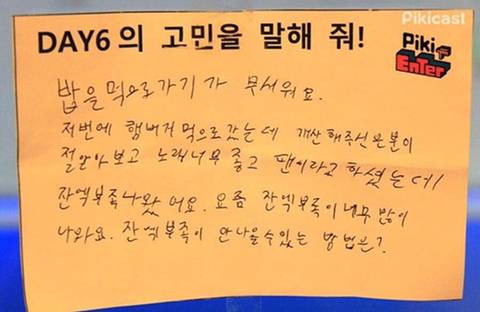 Pikicast
DAY6의 고민을 말해 줘!
Piki
EnTer
밥을먹으로가기가 무서워요.
저번에 햄버거 먹으로갔는데 계산해주신분이
절알아보고 노래너무좋고 팬이라고하셨는데
잔액부족나왔어요. 요즘 잔액부족이너무 많이
나와요. 잔액부족이 안나올수있는 방법은?